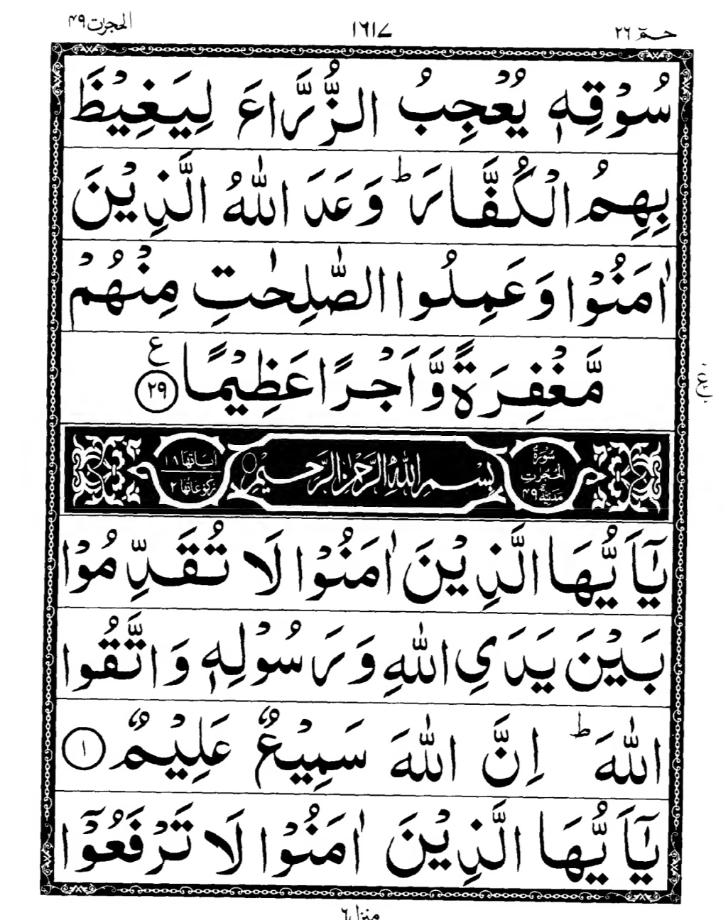 حٰمٓ ٢٦ ١٦١٧ الحجرت ٤٩
سُوْقِهٖ يُعْجِبُ الزُّرَّاعَ لِيَغِيْظَ
بِهِمُ الْكُفَّارَ ؕ وَعَدَ اللّٰهُ الَّذِيْنَ
اٰمَنُوْا وَعَمِلُوا الصّٰلِحٰتِ مِنْهُمْ
مَّغْفِرَةً وَّاَجْرًا عَظِيْمًا ﴿٢٩﴾ ع
سُوْرَةُ الْحُجُرٰتِ مَدَنِيَّةٌ ٤٩ بِسْمِ اللّٰهِ الرَّحْمٰنِ الرَّحِيْمِ اٰيَاتُهَا ١٨ رُكُوْعَاتُهَا ٢
يٰٓاَيُّهَا الَّذِيْنَ اٰمَنُوْا لَا تُقَدِّمُوْا
بَيْنَ يَدَيِ اللّٰهِ وَرَسُوْلِهٖ وَاتَّقُوا
اللّٰهَ ؕ اِنَّ اللّٰهَ سَمِيْعٌ عَلِيْمٌ ﴿١﴾
يٰٓاَيُّهَا الَّذِيْنَ اٰمَنُوْا لَا تَرْفَعُوْٓا
منزل ٦